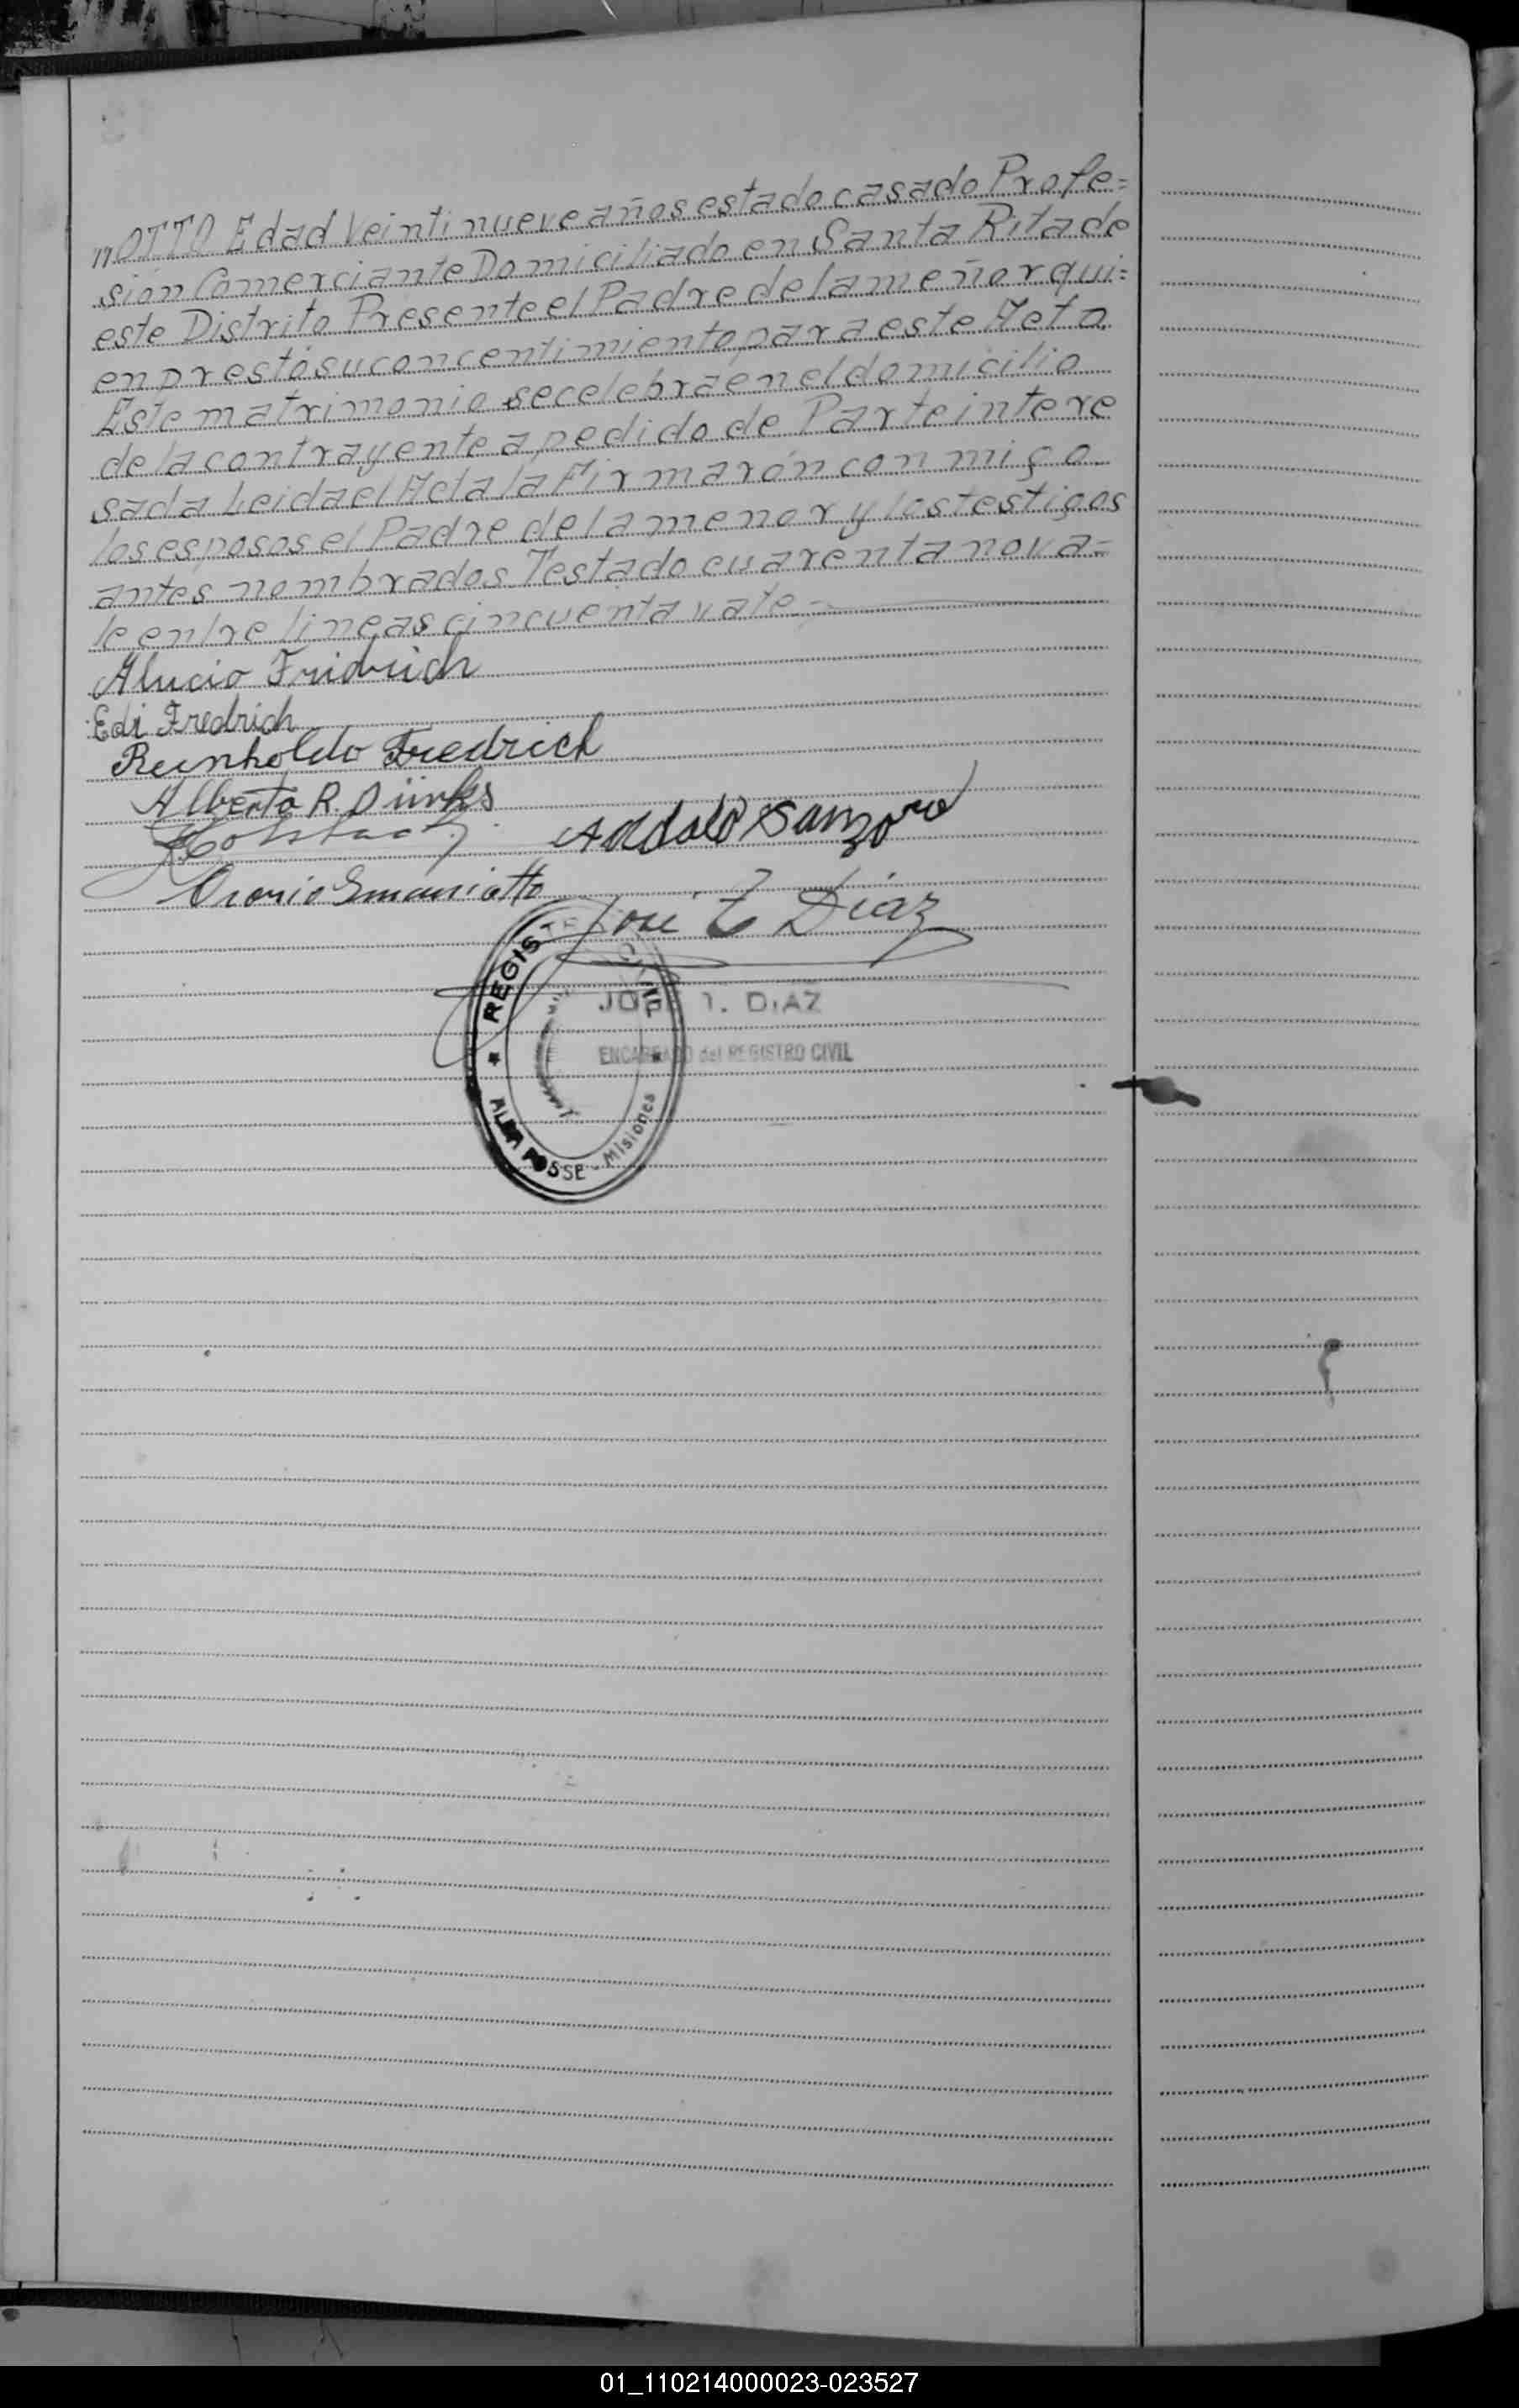 OTTO Edad Veinti nueve años estado casado Profe=
sión Comerciante Domiciliado en Santa Rita de
este Distrito Presente el Padre de la meñor qui=
en prestó su concentimiento para este Acto
Este matrimonio se celebra en el domicilio
de la contrayente a pedido de Parte intere
sada Leida el Acta la Firmarón con migo
los esposos el Padre de la menor y los testigos
antes nombrados Testado cuarenta no va=
le entre lineas cincuenta vale-
Alucio Fridrich
Edi Fredrich
Reinholdo Friedrich
Alberto R. Dünks
Ardolo Sanzovo
José I Diaz
REGISTRO CIVIL
JOSE I. DIAZ
ENCARGADO del REGISTRO CIVIL
ALBA POSSE - Misiones
01_110214000023-023527